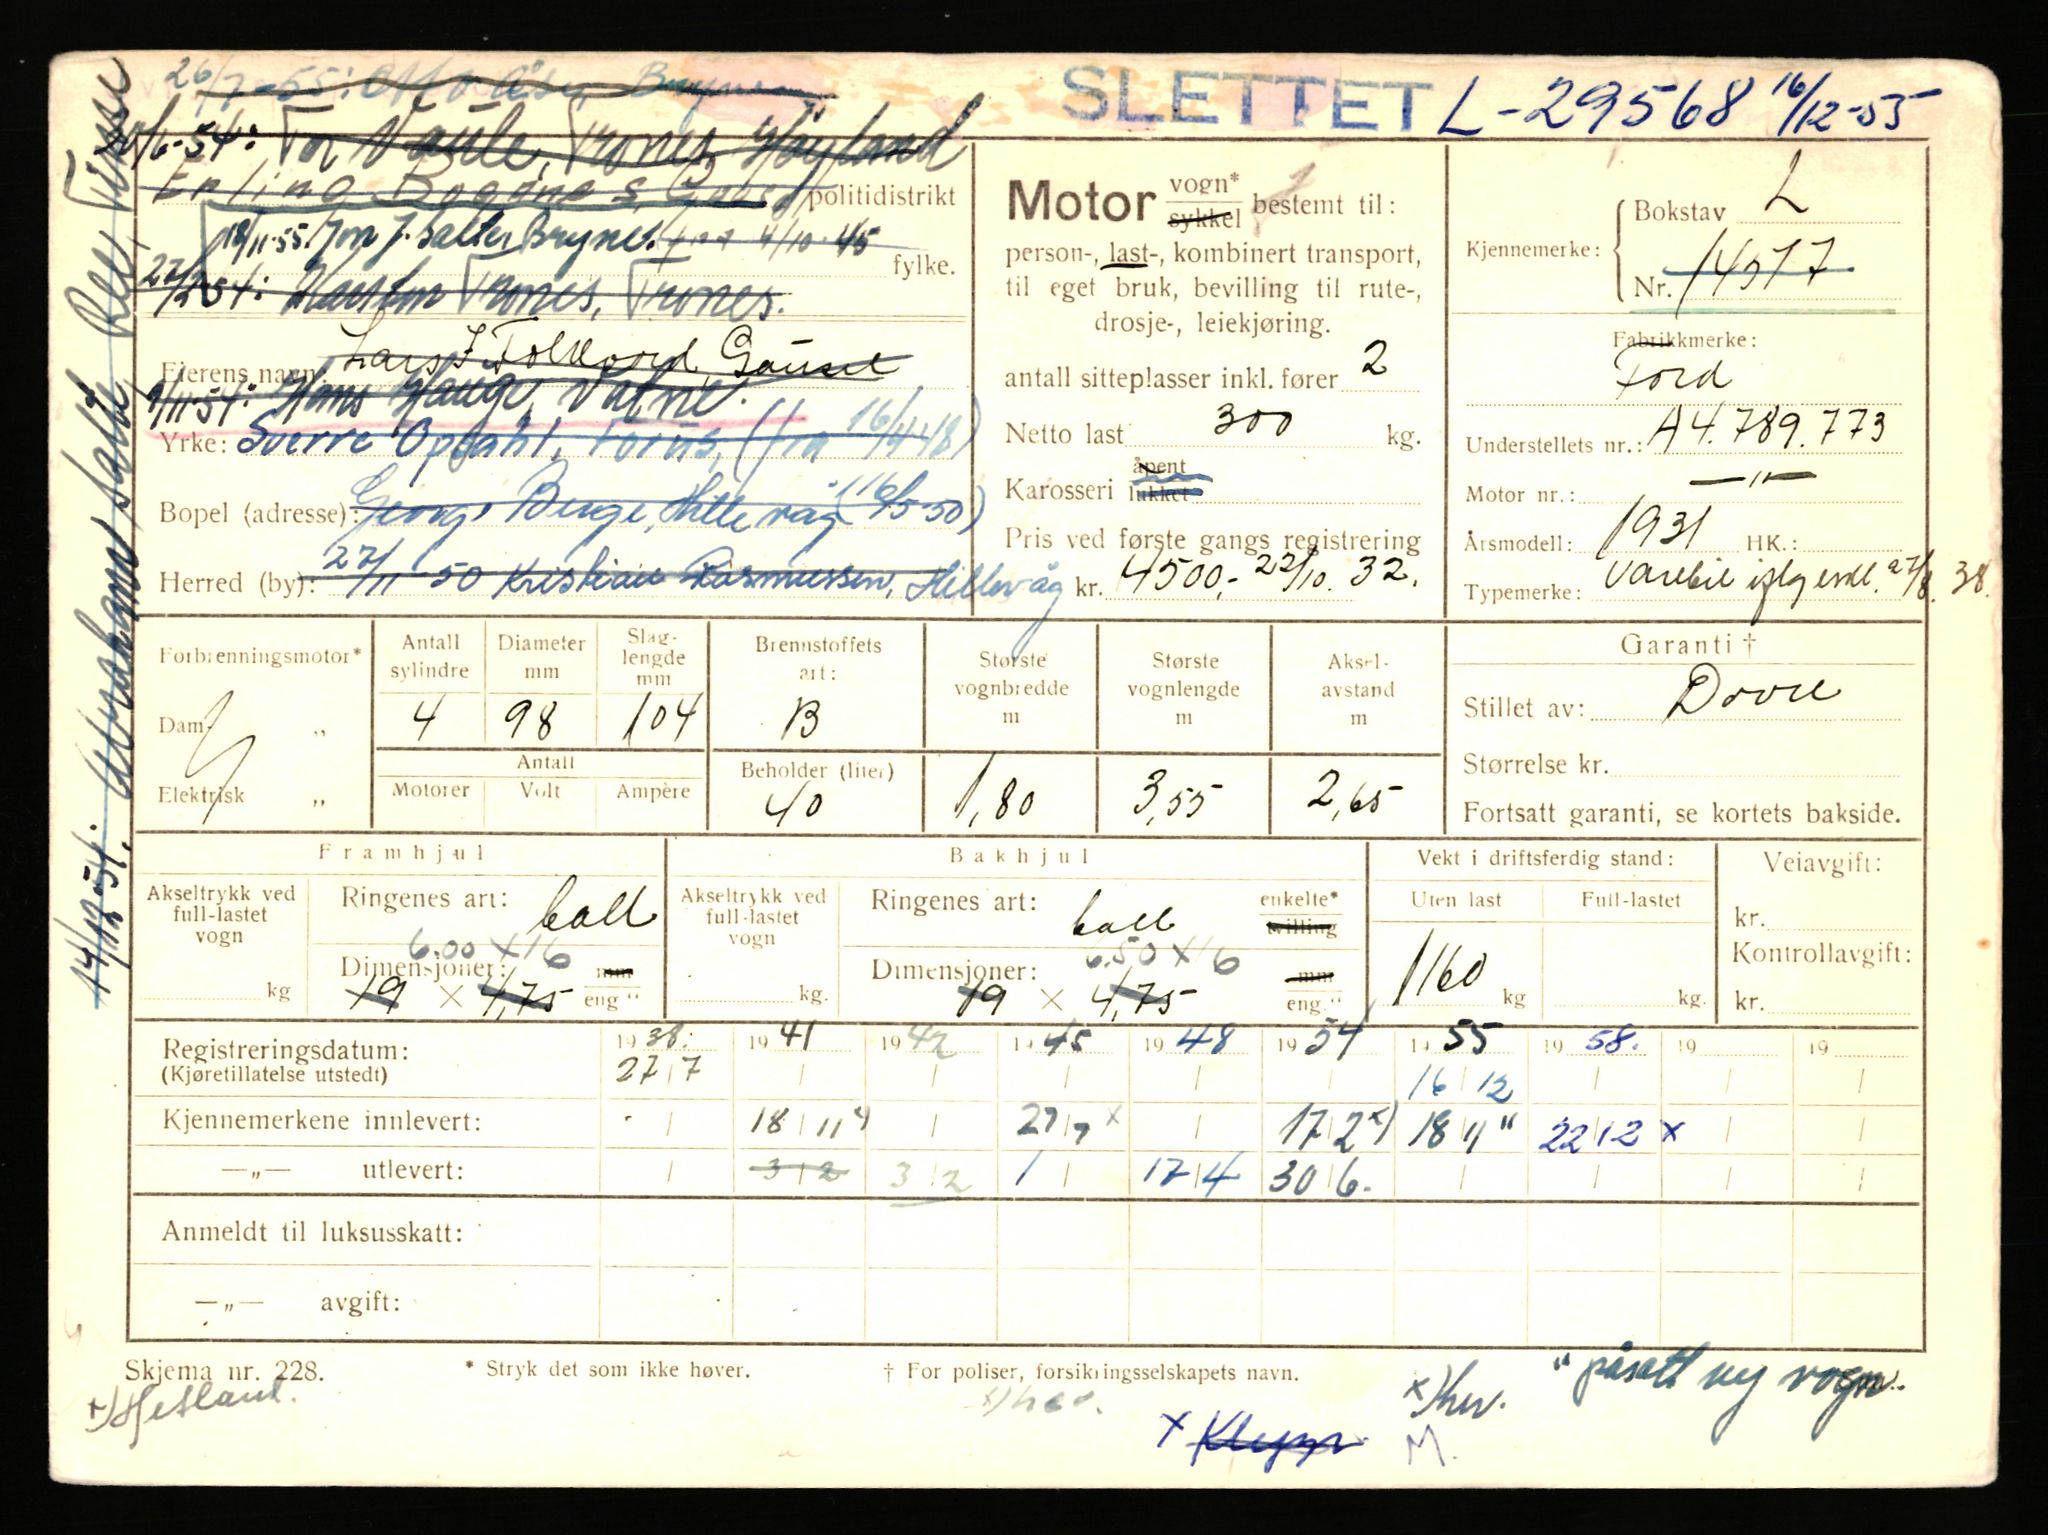 26/7-55: Otto Åse, Bryne
SLETTET L-29568 16/12-55
30/6-54: Tor Vaule, Trones, Høyland
Erling Bogönes, politidistrikt
18/11-55. Jon J. Salte, Bryne. 4/10-45
fylke.
22/2-54: Karsten Trones, Trones.
Eierens navn: Lars J. Folkvord, Gausel
9/11-54: Hans Hauge, Vatne.
Yrke: Sverre Opdahl, Forus, (fra 16/4-48)
Bopel (adresse): Georg Berge, Hillevåg (16/5-50)
Herred (by): 27/11-50 Kristian Rasmussen, Hillevåg
14/12-54:
Salte, Ree, Time
Motor vogn* sykkel bestemt til:
person-, last-, kombinert transport,
til eget bruk, bevilling til rute-,
drosje-, leiekjøring.
antall sitteplasser inkl. fører 2
Netto last 300 kg.
Karosseri åpent lukket
Pris ved første gangs registrering
kr. 4500,- 22/10. 32.
Kjennemerke: Bokstav L
Nr. 14577
Fabrikkmerke:
Ford
Understellets nr.: A4.789.773
Motor nr.: —"—
Årsmodell: 1931 HK.:
Typemerke: Varebil iflg. 27/8. 38.
Forbrenningsmotor*
Dam- „
Elektrisk „
Antall sylindre 4
Diameter mm 98
Slag-lengde mm 104
Antall
Motorer Volt Ampère
Brennstoffets art: B
Beholder (liter) 40
Største vognbredde m 1,80
Største vognlengde m 3,55
Aksel-avstand m 2,65
Garanti †
Stillet av: Dovre
Størrelse kr.
Fortsatt garanti, se kortets bakside.
Framhjul
Akseltrykk ved full-lastet vogn kg
Ringenes art: ball
6.00 x 16
Dimensjoner: mm
19 × 4,75 eng "
Bakhjul
Akseltrykk ved full-lastet vogn kg.
Ringenes art: ball enkelte* tvilling
6.50 x 16
Dimensjoner: mm
19 × 4,75 eng."
Vekt i driftsferdig stand:
Uten last Full-lastet
1160 kg kg.
Veiavgift:
kr.
Kontrollavgift:
kr.
Registreringsdatum: 1938. 1941 1942 1945 1948 1954 1955 1958. 19 19
(Kjøretillatelse utstedt) 27 7 16 12
Kjennemerkene innlevert: 18 11 4 27 7 x 17 2 x) 18 11 " 22 12 x
—„— utlevert: 3 2 3 2 1 17 4 30 6.
Anmeldt til luksusskatt:
—„— avgift:
Skjema nr. 228. * Stryk det som ikke høver. † For poliser, forsikringsselskapets navn.
+) Hetland.
x) her.
x Klepp
x) her.
M.
" påsatt ny vogn.